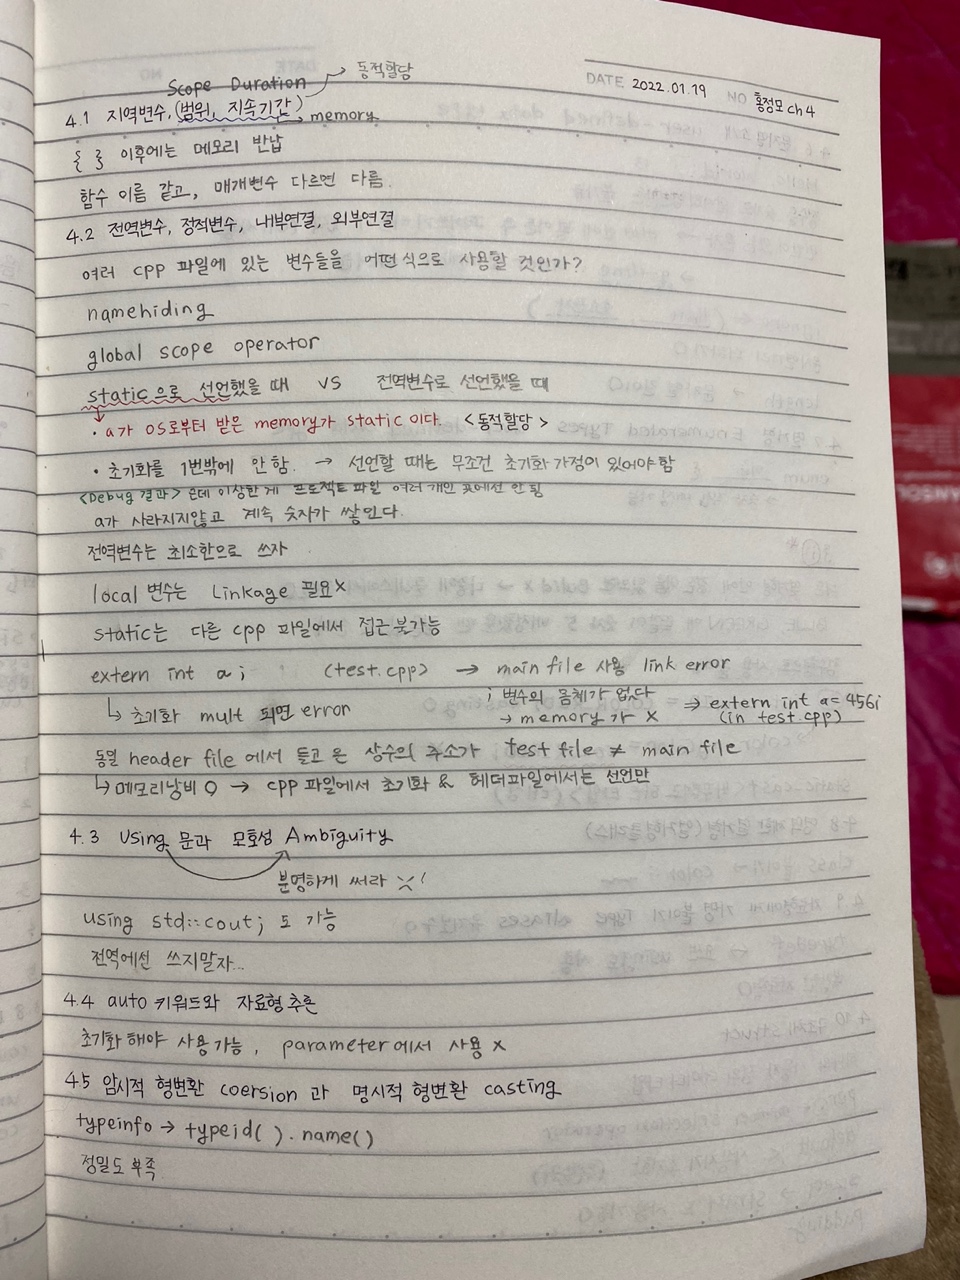 DATE 2022.01.19 NO 홍정모 ch4
Scope Duration → 동적할당
4.1 지역변수, (범위, 지속기간) memory
{ } 이후에는 메모리 반납
함수 이름 같고, 매개변수 다르면 다름.
4.2 전역변수, 정적변수, 내부연결, 외부연결
여러 cpp 파일에 있는 변수들을 어떤 식으로 사용할 것인가?
namehiding
global scope operator
static으로 선언했을 때 VS 전역변수로 선언했을 때
· a가 OS로부터 받은 memory가 static 이다. <동적할당>
· 초기화를 1번밖에 안 함. → 선언할 때는 무조건 초기화 가정이 있어야 함
<Debug 결과> 근데 이상한 게 프로젝트 파일 여러 개인 곳에선 안 됨
a가 사라지지않고 계속 숫자가 쌓인다.
전역변수는 최소한으로 쓰자
local 변수는 Linkage 필요×
static는 다른 cpp 파일에서 접근 불가능
extern int a; (test.cpp) → main file 사용 link error
; 변수의 몸체가 없다
↳ 초기화 mult 되면 error → memory가 × ⇒ extern int a=456;
(in test.cpp)
동일 header file 에서 들고 온 상수의 주소가 test file ≠ main file
↳메모리낭비 O → cpp 파일에서 초기화 & 헤더파일에서는 선언만
4.3 Using 문과 모호성 Ambiguity
분명하게 써라
using std::cout; 도 가능
전역에선 쓰지말자...
4.4 auto 키워드와 자료형 추론
초기화 해야 사용 가능, parameter에서 사용 ×
4.5 암시적 형변환 coersion 과 명시적 형변환 casting
typeinfo → typeid( ).name()
정밀도 부족